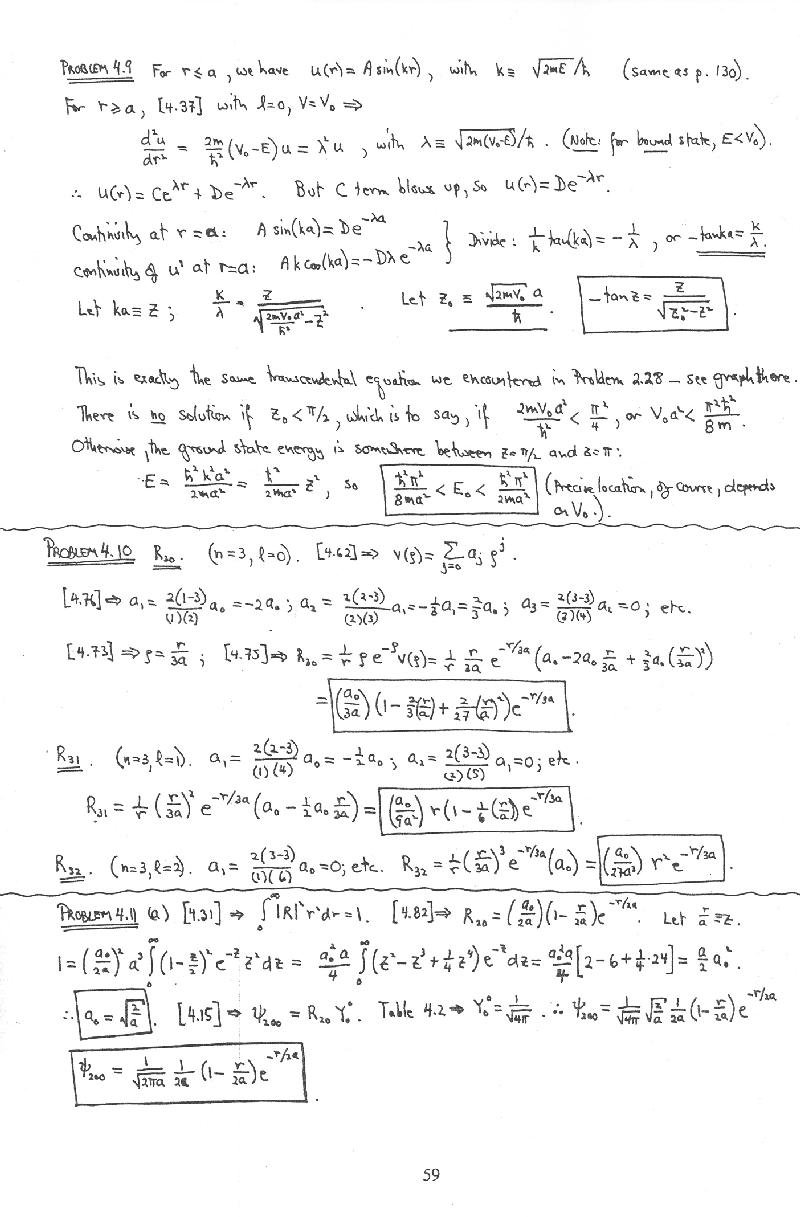 PROBLEM 4.9 For r ≤ a, we have u(r) = A sin(kr), with k ≡ √(2mE)/ħ (same as p. 130).
For r ≥ a, [4.37] with l=0, V=V₀ ⇒
d²u/dr² = 2m/ħ² (V₀-E) u = λ²u, with λ ≡ √(2m(V₀-E))/ħ. (Note: for bound state, E<V₀).
∴ u(r) = Ce^{λr} + De^{-λr}. But C term blows up, so u(r) = De^{-λr}.
Continuity at r=a: A sin(ka) = De^{-λa} } Divide: 1/k tan(ka) = -1/λ, or -tan ka = k/λ.
Continuity of u' at r=a: Ak cos(ka) = -Dλe^{-λa}
Let ka ≡ z; k/λ = z/√(2mV₀a²/ħ² - z²). Let z₀ ≡ √(2mV₀) a/ħ. -tan z = z/√(z₀²-z²).
This is exactly the same transcendental equation we encountered in Problem 2.28 – see graph there.
There is no solution if z₀ < π/2, which is to say, if 2mV₀a²/ħ² < π²/4, or V₀a² < π²ħ²/8m.
Otherwise, the ground state energy is somewhere between z=π/2 and z=π:
E = ħ²k²a²/2ma² = ħ²/2ma² z², so ħ²π²/8ma² < E₀ < ħ²π²/2ma² (Precise location, of course, depends
on V₀.).
PROBLEM 4.10 R₃₀. (n=3, l=0). [4.62] ⇒ v(ρ) = Σ_{j=0} a_j ρ^j.
[4.76] ⇒ a₁ = 2(1-3)/(1)(2) a₀ = -2a₀; a₂ = 2(2-3)/(2)(3) a₁ = -1/3 a₁ = 2/3 a₀; a₃ = 2(3-3)/(3)(4) a₂ = 0; etc.
[4.73] ⇒ ρ = r/3a; [4.75] ⇒ R₃₀ = 1/r ρe^{-ρ} v(ρ) = 1/r r/3a e^{-r/3a} (a₀ - 2a₀ r/3a + 2/3 a₀ (r/3a)²)
= (a₀/3a) (1 - 2/3(r/a) + 2/27(r/a)²) e^{-r/3a}.
R₃₁. (n=3, l=1). a₁ = 2(2-3)/(1)(4) a₀ = -1/2 a₀; a₂ = 2(3-3)/(2)(5) a₁ = 0; etc.
R₃₁ = 1/r (r/3a)² e^{-r/3a} (a₀ - 1/2 a₀ r/3a) = (a₀/9a²) r (1 - 1/6(r/a)) e^{-r/3a}.
R₃₂. (n=3, l=2). a₁ = 2(3-3)/(1)(6) a₀ = 0; etc. R₃₂ = 1/r (r/3a)³ e^{-r/3a} (a₀) = (a₀/27a³) r² e^{-r/3a}.
PROBLEM 4.11 (a) [4.31] ⇒ ∫₀^∞ |R|² r² dr = 1. [4.82] ⇒ R₂₀ = (a₀/2a)(1 - r/2a) e^{-r/2a}. Let r/a ≡ z.
1 = (a₀/2a)² a³ ∫₀^∞ (1 - z/2)² e^{-z} z² dz = a₀²a/4 ∫₀^∞ (z² - z³ + 1/4 z⁴) e^{-z} dz = a₀²a/4 [2 - 6 + 1/4·24] = a/2 a₀².
∴ a₀ = √(2/a). [4.15] ⇒ ψ₂₀₀ = R₂₀ Y₀⁰. Table 4.2 ⇒ Y₀⁰ = 1/√4π. ∴ ψ₂₀₀ = 1/√4π √(2/a) 1/2a (1 - r/2a) e^{-r/2a}
ψ₂₀₀ = 1/√(2πa) 1/2a (1 - r/2a) e^{-r/2a}.
59